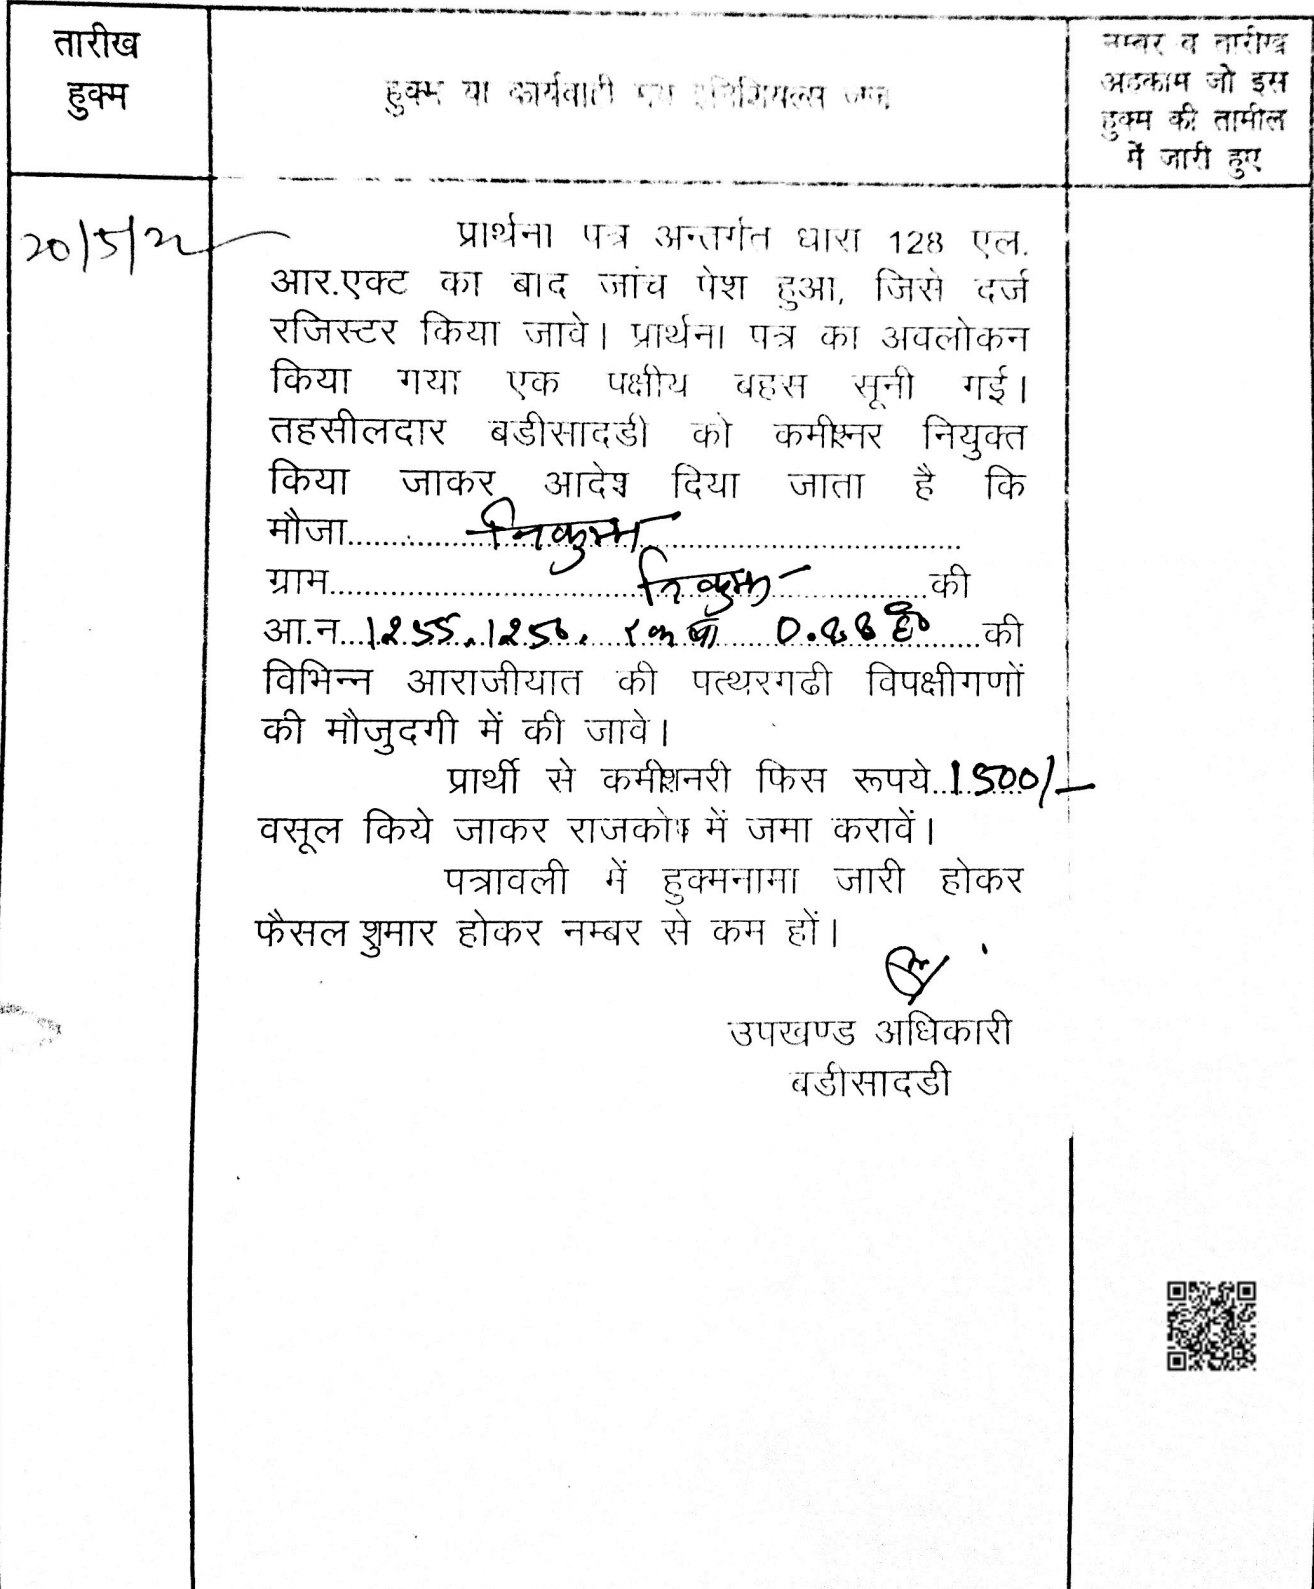 तारीख
हुक्म
हुक्म या कार्यवाही मय इनिशियल्स जज
नम्बर व तारीख
अहकाम जो इस
हुक्म की तामील
में जारी हुए
20/5/22
प्रार्थना पत्र अन्तर्गत धारा 128 एल.
आर.एक्ट का बाद जांच पेश हुआ, जिसे दर्ज
रजिस्टर किया जावे। प्रार्थना पत्र का अवलोकन
किया गया एक पक्षीय बहस सूनी गई।
तहसीलदार बडीसादडी को कमीश्नर नियुक्त
किया जाकर आदेश दिया जाता है कि
मौजा.......निकुम्भ.......
ग्राम.......निकुम्भ.......की
आ.न...1255, 1256, रकबा 0.88 है०...की
विभिन्न आराजीयात की पत्थरगढी विपक्षीगणों
की मौजुदगी में की जावे।
प्रार्थी से कमीशनरी फिस रूपये..1500/-
वसूल किये जाकर राजकोष में जमा करावें।
पत्रावली में हुक्मनामा जारी होकर
फैसल शुमार होकर नम्बर से कम हों।
उपखण्ड अधिकारी
बडीसादडी